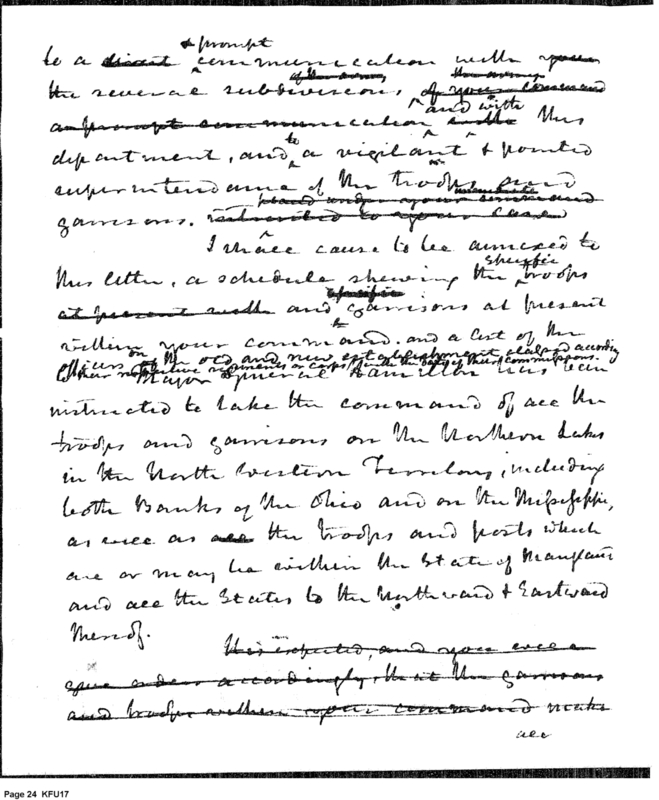 & prompt
to a direct communication with your
of the army, the army
the several subdivisions, of your command
and with
a prompt communication with this
to
department, and a vigilant & pointed
superintendance of the troops and
placed under your command
garrisons. intrusted to your care
I shall cause to be annexed to
specific
this letter, a schedule shewing the troops
specific
at present with and garrisons at present
within your command. and a list of the
officers on the old and new establishment classed according
their respective regiments or corps, with the dates of their commissions.
Major General Hamilton has been
instructed to take the command of all the
troops and garrisons on the Northern Lakes
in the North Western Territory, including
both Banks of the Ohio and on the Mississippi,
as well as all the troops and posts which
are or may be within the State of Maryland
and all the States to the Northward & Eastward
thereof.
It is expected, and you will
give orders accordingly, that the garrisons
and troops within your command make
all
Page 24 KFU17